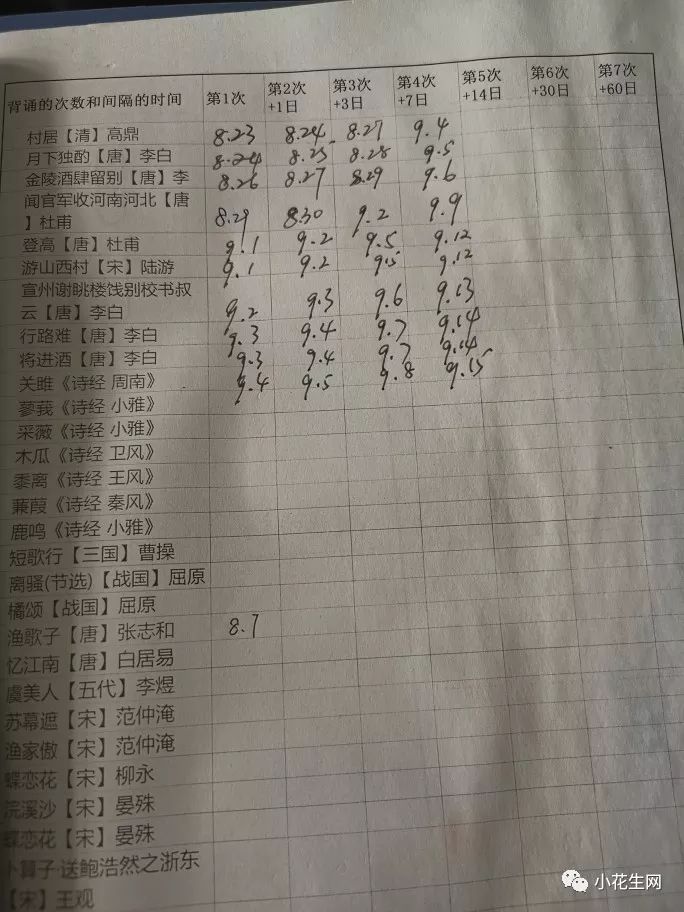 背诵的次数和间隔的时间 第1次 第2次 第3次 第4次 第5次 第6次 第7次
+1日 +3日 +7日 +14日 +30日 +60日
村居【清】高鼎 8.23 8.24 8.27 9.4
月下独酌【唐】李白 8.24 8.25 8.28 9.5
金陵酒肆留别【唐】李 8.26 8.27 8.29 9.6
闻官军收河南河北【唐
】杜甫 8.29 8.30 9.2 9.9
登高【唐】杜甫 9.1 9.2 9.5 9.12
游山西村【宋】陆游 9.1 9.2 9.5 9.12
宣州谢眺楼饯别校书叔
云【唐】李白 9.2 9.3 9.6 9.13
行路难【唐】李白 9.3 9.4 9.7 9.14
将进酒【唐】李白 9.3 9.4 9.7 9.14
关雎《诗经 周南》 9.4 9.5 9.8 9.15
蓼莪《诗经 小雅》
采薇《诗经 小雅》
木瓜《诗经 卫风》
黍离《诗经 王风》
蒹葭《诗经 秦风》
鹿鸣《诗经 小雅》
短歌行【三国】曹操
离骚(节选)【战国】屈原
橘颂【战国】屈原
渔歌子【唐】张志和 8.7
忆江南【唐】白居易
虞美人【五代】李煜
苏幕遮【宋】范仲淹
渔家傲【宋】范仲淹
蝶恋花【宋】柳永
浣溪沙【宋】晏殊
蝶恋花【宋】晏殊
卜算子·送鲍浩然之浙东
【宋】王观
小花生网